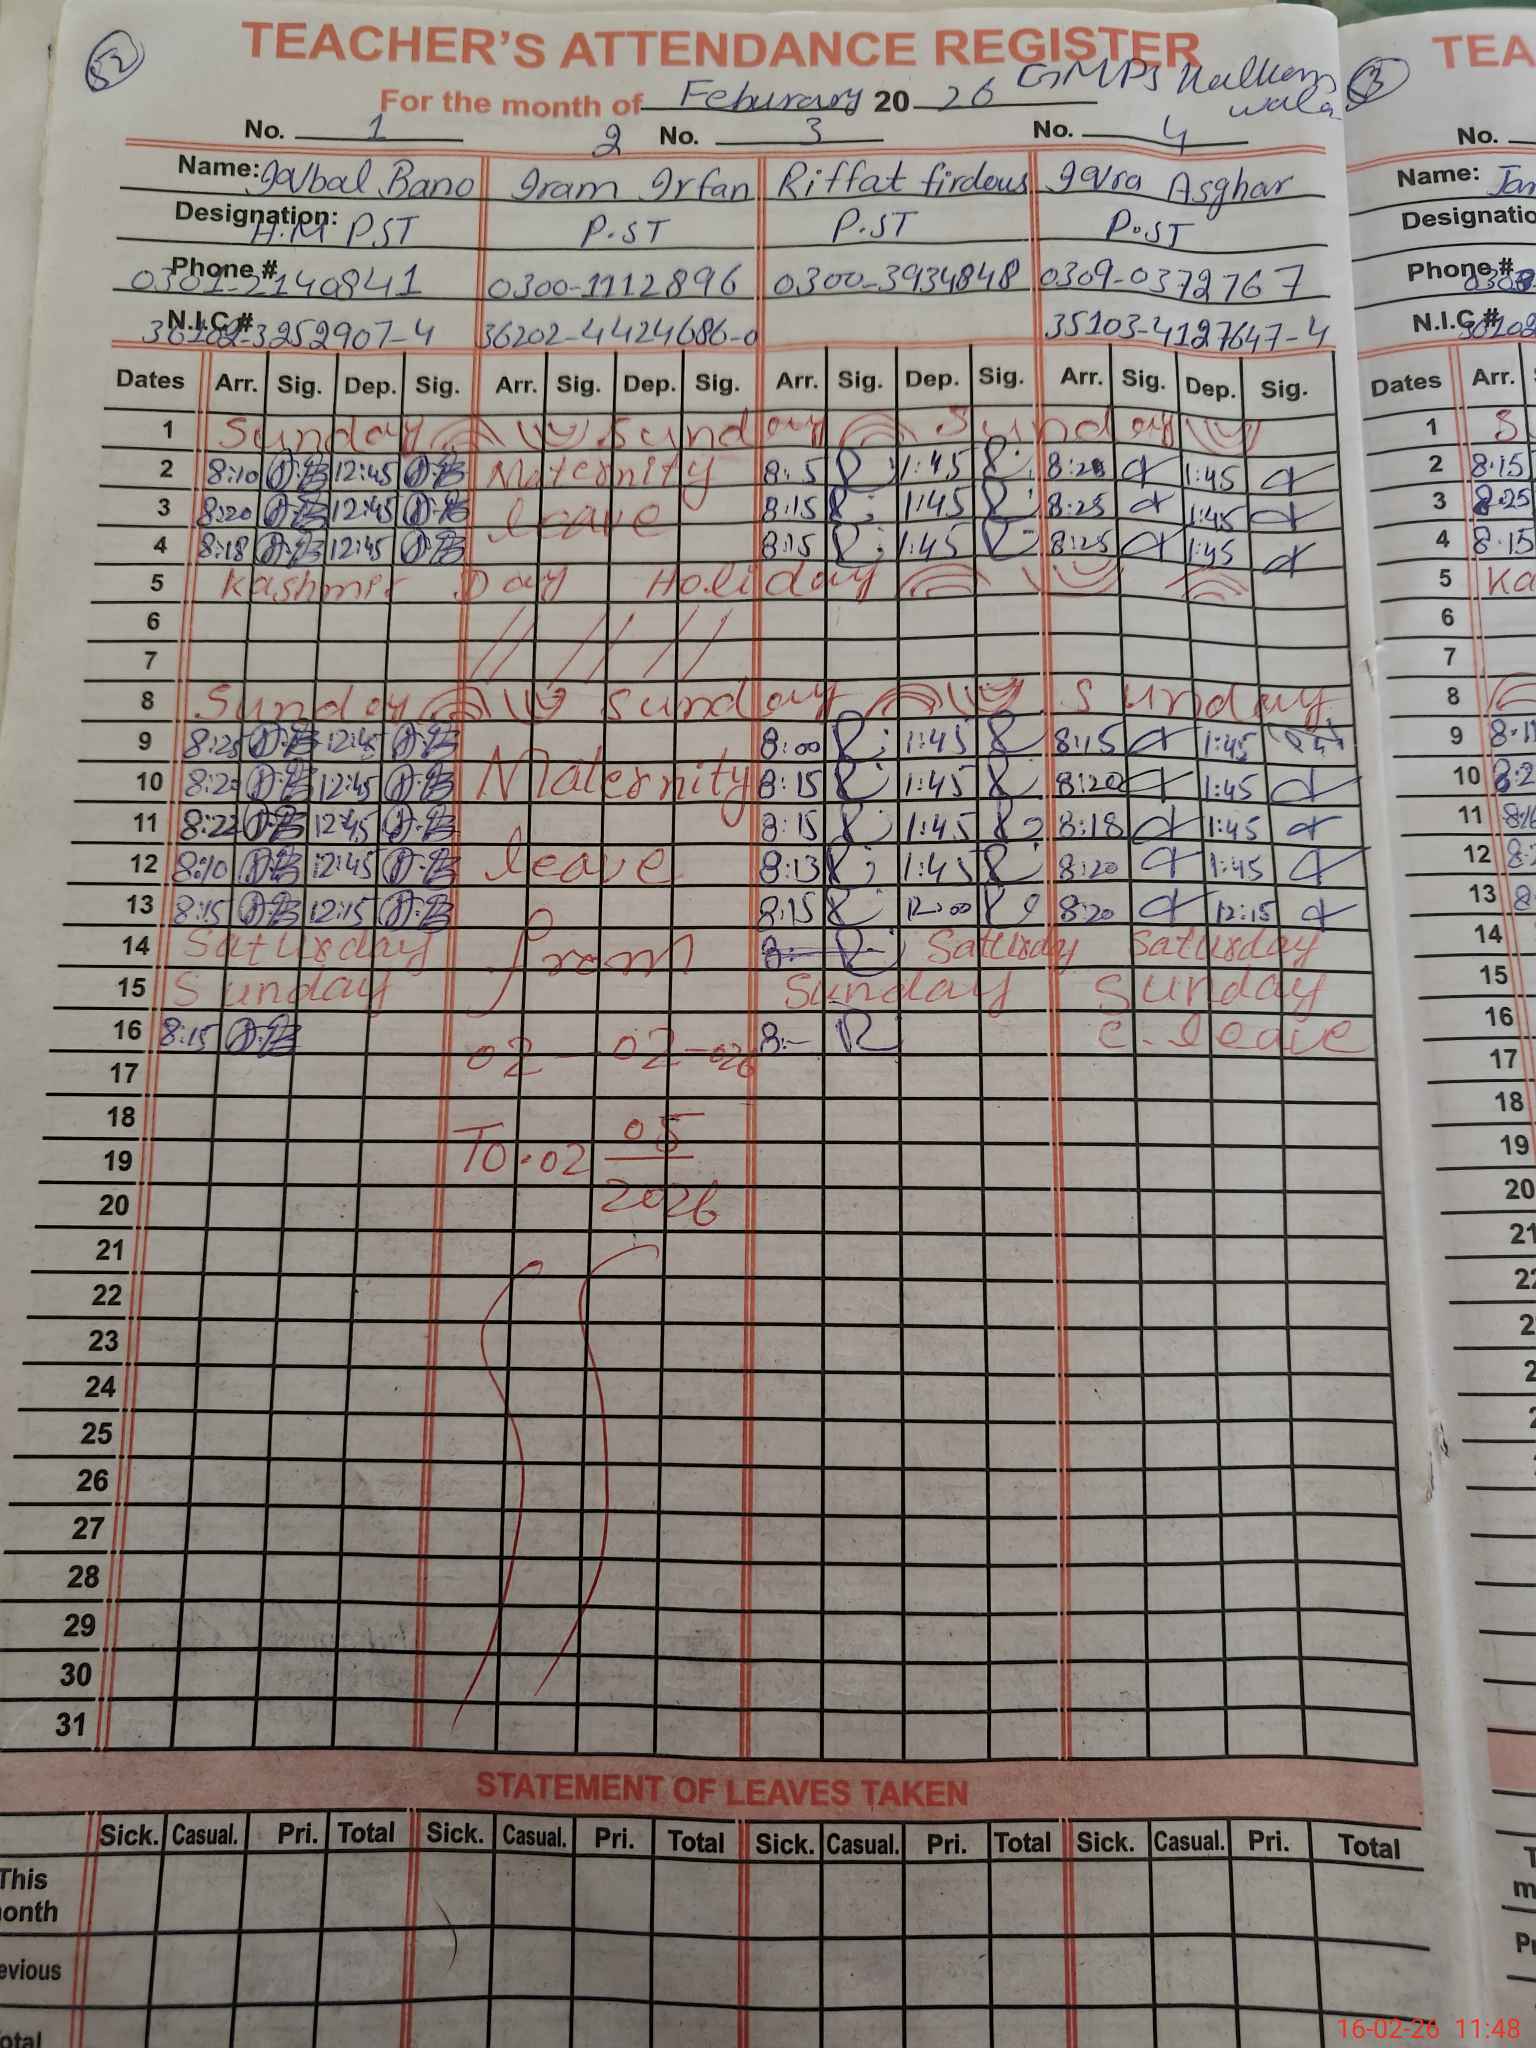 52
TEACHER'S ATTENDANCE REGISTER
For the month of Feburary 20 26 GMPS
3
No. 1 2 No. 3 No. 4
Name: Iqbal Bano Iram Irfan Riffat firdous Iqra Asghar
Designation: H.M PST P.ST P.ST P.ST
Phone # 0301-2140841 0300-1112896 0300-3934848 0309-0372767
N.I.C # 36202-4424686-0 35103-4127647-4
Dates Arr. Sig. Dep. Sig. Arr. Sig. Dep. Sig. Arr. Sig. Dep. Sig. Arr. Sig. Dep. Sig.
1 Sunday Sunday Sunday
2 8:10 12:45 Maternity 1:45 1:45
3 8:20 12:45 leave 8:15 1:45 8:25 1:45
4 8:18 12:45 8:15 1:45 8:25 1:45
5 Kashmir Day Holiday
6
7
8 Sunday Sunday Sunday
9 8:25 12:45 8:00 1:45 8:15 1:45
10 8:20 12:45 Maternity 8:15 1:45 8:20 1:45
11 8:22 12:45 8:15 1:45 8:18 1:45
12 8:10 12:45 leave 8:13 1:45 8:20 1:45
13 8:15 12:15 8:15 12:00 8:20 12:15
14 Saturday from Saturday Saturday
15 Sunday Sunday Sunday
16 8:15 02-02-026 8:- C. leave
17
18
19 To.02 05
20 2026
21
22
23
24
25
26
27
28
29
30
31
STATEMENT OF LEAVES TAKEN
Sick. Casual. Pri. Total Sick. Casual. Pri. Total Sick. Casual. Pri. Total Sick. Casual. Pri. Total
This
onth
evious
otal
TEA
No.
Name:
Designatio
Phone #
N.I.C #
Dates Arr.
1 S
2 8:15
3 8:25
4 8:15
5 Ka
6
7
8
9
10
11
12
13
14
15
16
17
18
19
20
21
16-02-26 11:48